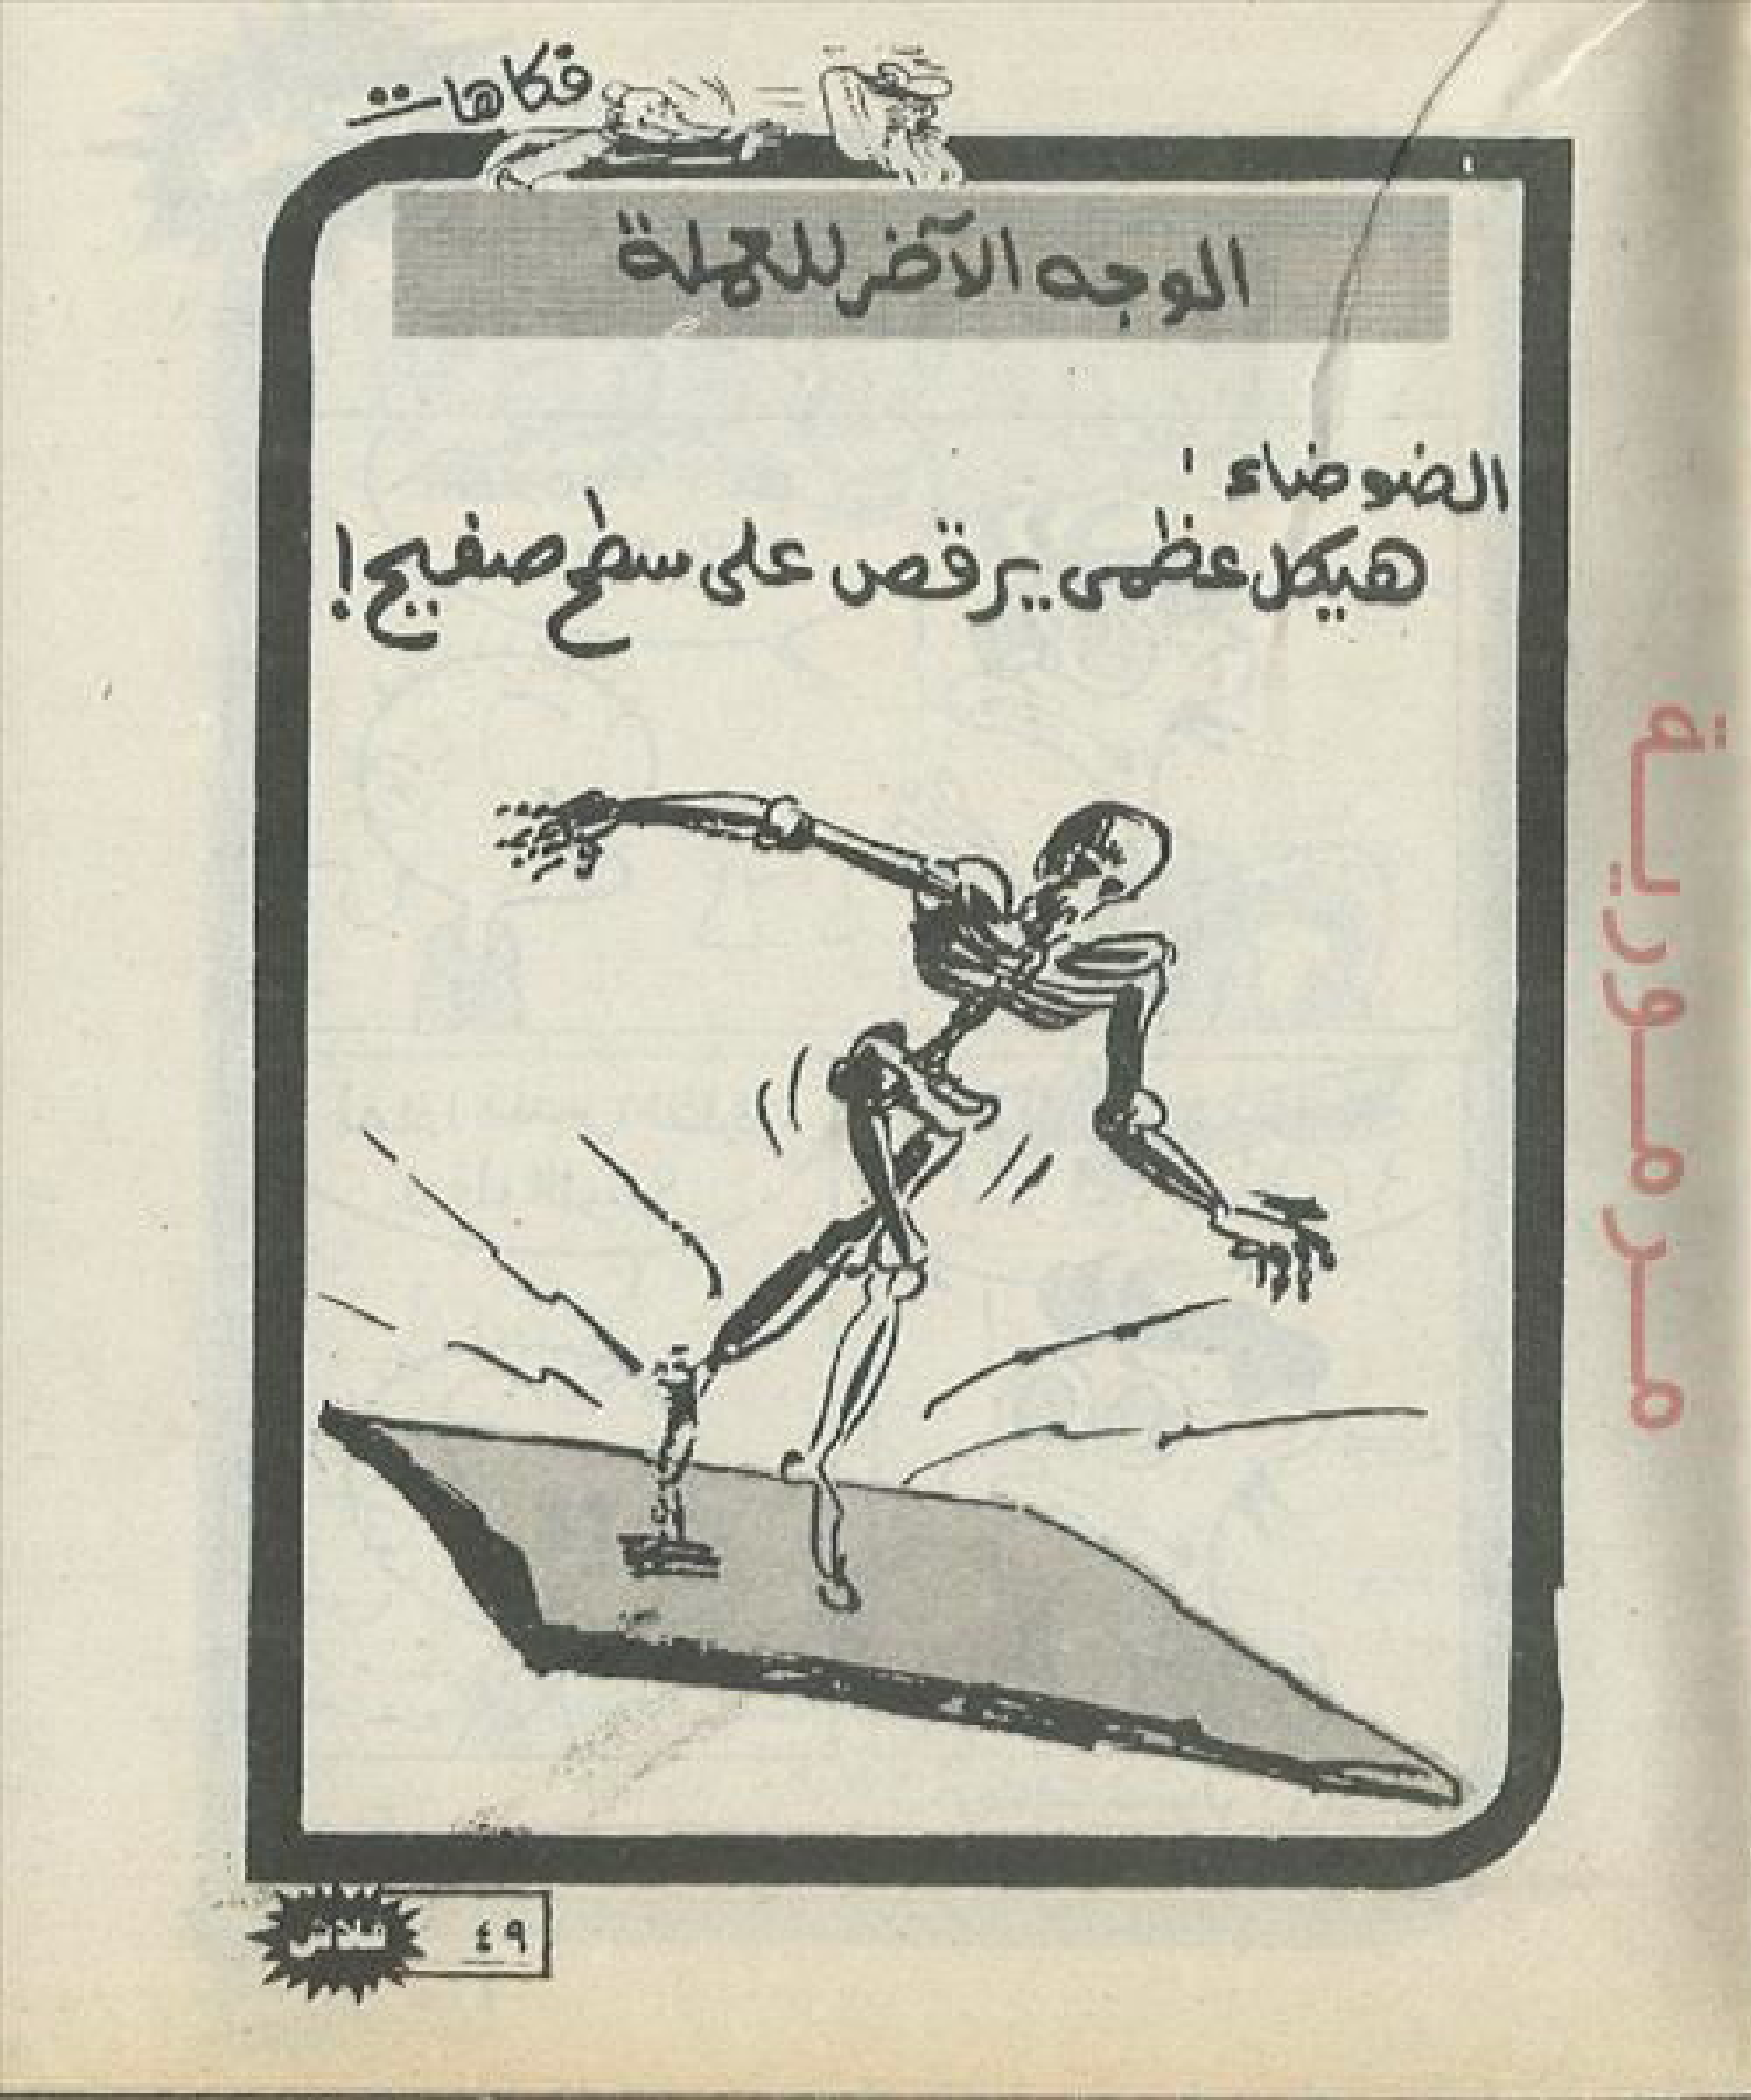 فكاهات
الوجه الآخر للعملة
الضوضاء :
هيكل عظمى يرقص على سطح صفيح !
مرمورية
٤٩
فلاش